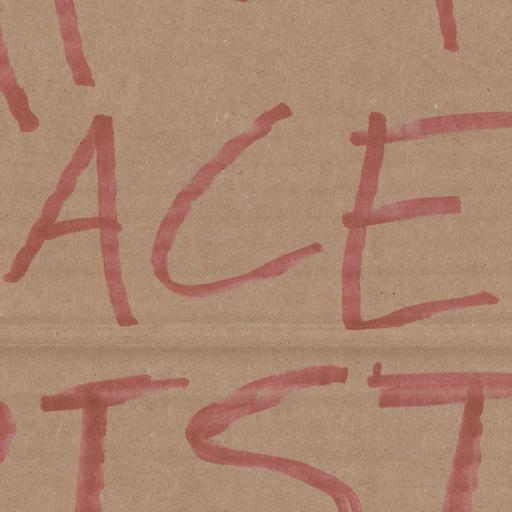 ACE
TST